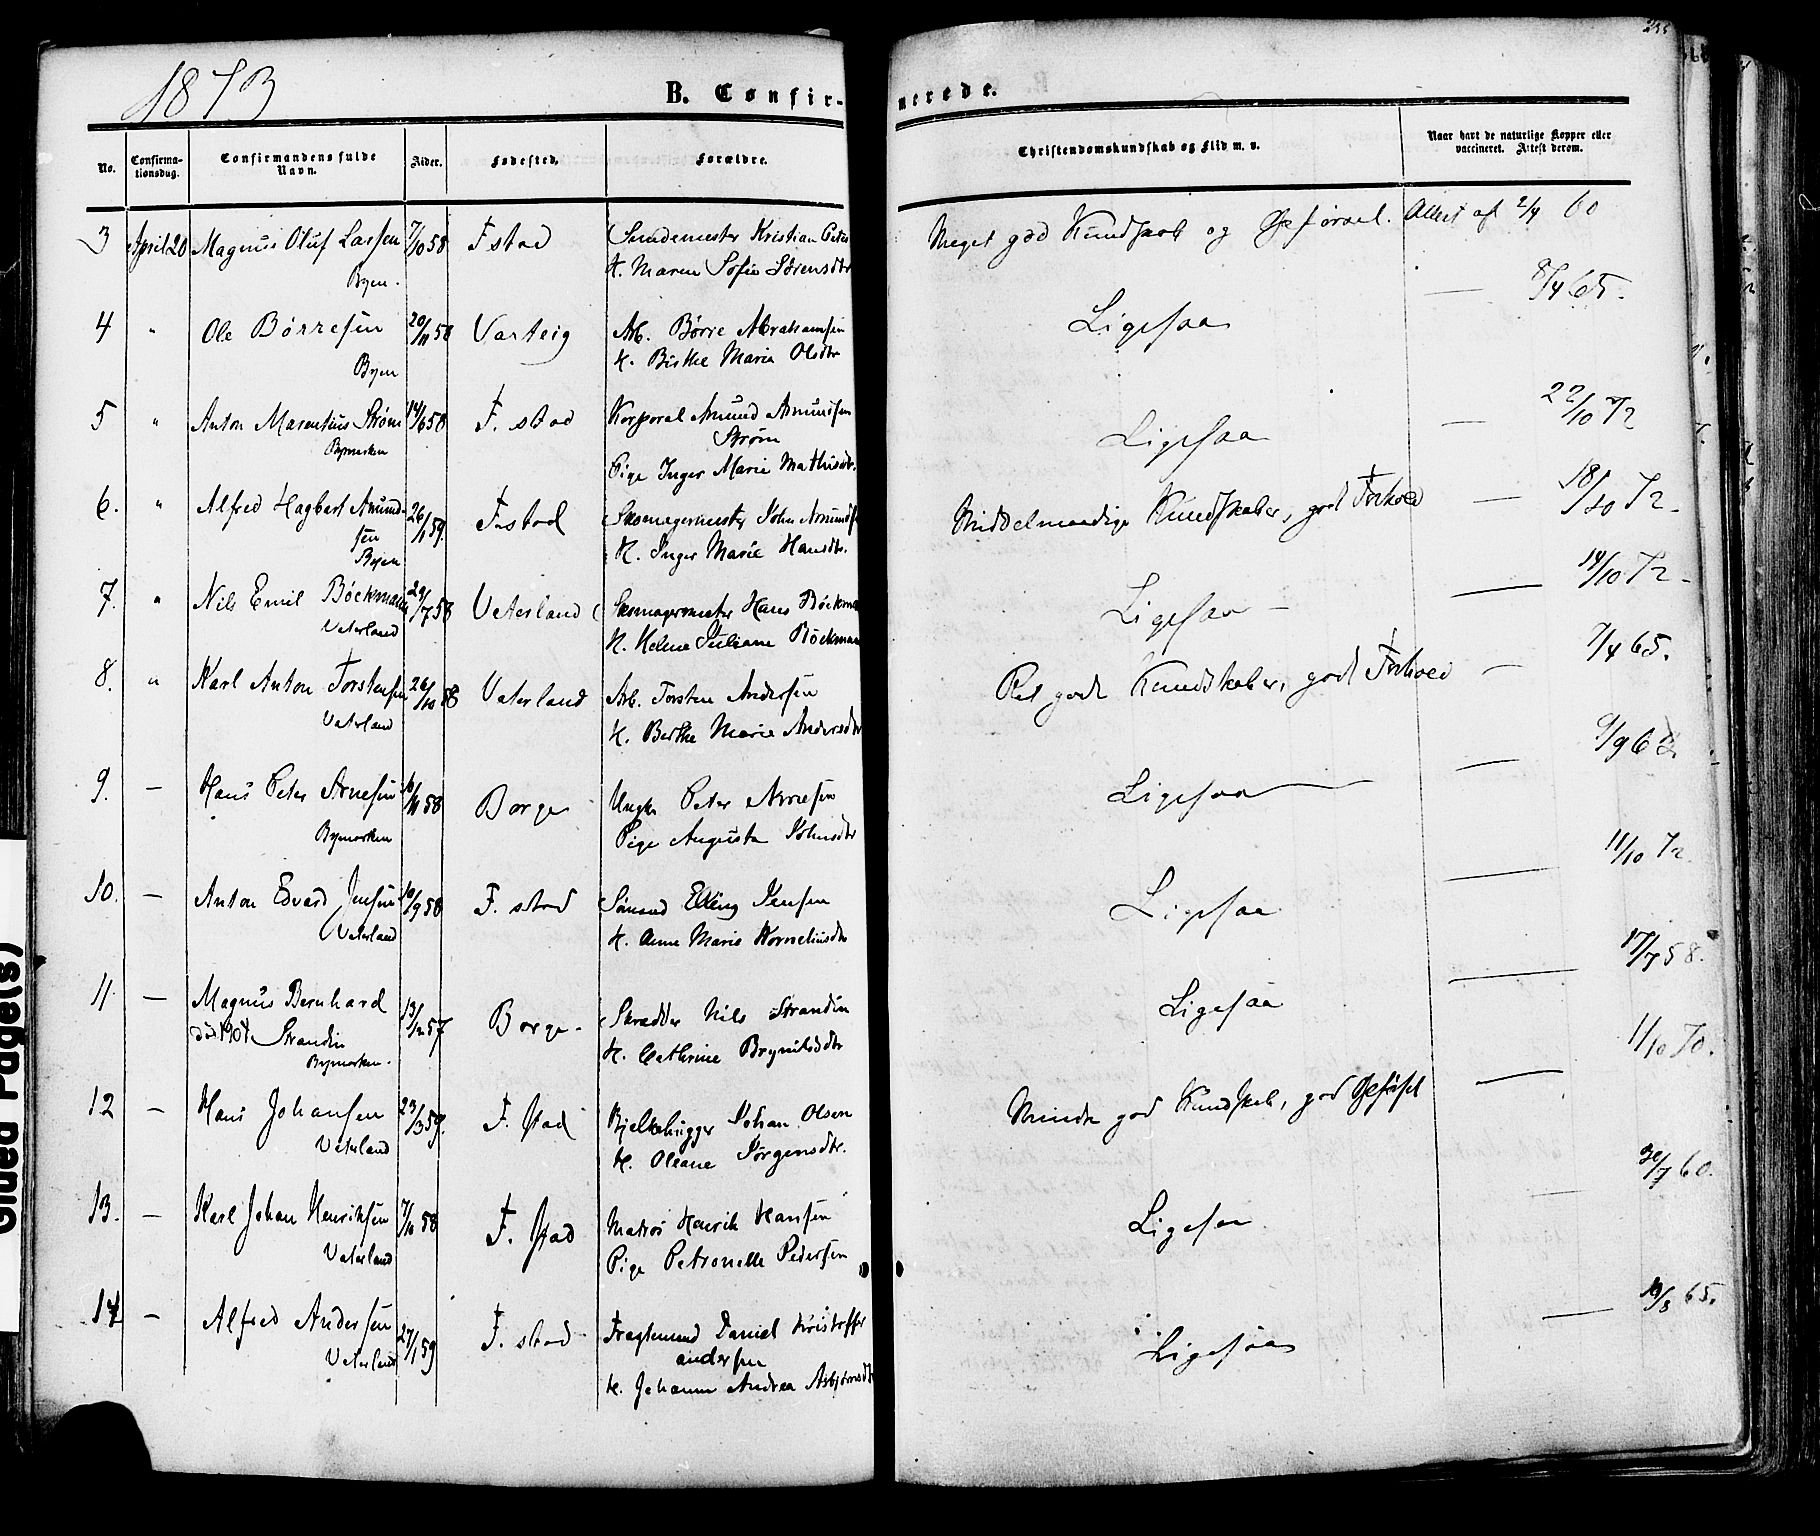 1873
B. Confir-
merede.
255
No.
Confirma-
tionsdag.
Confirmandens fulde
Navn.
Alder.
Fødested.
Forældre.
Christendomskundskab og Flid m. v.
Naar havt de naturlige Kopper eller
vaccineret. Attest derom.
3 April 20 Magnus Oluf Larsen 7/10 58 F stad Smedemester Kristian
Byen. H. Maren Sofie Sørensdtr
Meget god Kundskab og Opførsel. Attest af 2/9 60
4 " Ole Børresen 20/11 58 Varteig Arb. Børre Abrahamsen
Byen H. Birthe Marie Olsdtr
Ligesaa — 8/4 65.
5 " Anton Marentius Strøm 14/6 58 F. stad Korporal Amund Amundsen
Strøm
Bymarken Pige Inger Marie Mathisdtr.
Ligesaa — 22/10 72
6. " Alfred Hagbart Amund- 26/1 59. F. stad Skomagermester John Amunds
sen
Byen H. Inger Marie Hansdtr.
Middelmaadige Kundskaber, god Forhold — 18/10 72
7. " Nils Emil Böckmann 29/7 58 Vaterland Skomagermester Hans Böckma
Vaterland H. Helene Juliane Böckman
Ligesaa — 14/10 72
8. " Karl Anton Torstensen 26/10 58 Vaterland Arb. Torsten Andersen
Vaterland H. Berthe Marie Andersdtr
Ret gode Kundskaber, god Forhold — 7/4 65.
9. — Hans Peter Arnesen 58 Borge Ungk. Peter Arnesen
Bymarken Pige Augusta Johnsdtr
Ligesaa — 9/9
10. — Anton Edvard Jensen 10/9 58 F. stad Sømand Elling Jensen
Vaterland H. Anne Marie Korneliusdtr
Ligesaa — 11/10 72.
11. — Magnus Bernhard 13/12 57 Borge Skredder Nils Strandin
Strandin
Bymarken. H. Cathrine Brynildsdtr
Ligesaa — 17/7 58.
12 — Hans Johansen 23/3 59. F. stad Bjelkehugger Johan Olsen
Vaterland H. Oleane Jørgensdtr.
Mindre god Kundskab, god Opførsel — 11/10 70.
13. — Karl Johan Henriksen 7/11 58 F. stad Matros Henrik Hansen
Vaterland Pige Petronelle Pedersen
Ligesaa — 30/7 60.
14 — Alfred Andersen 27/1 59 F. stad Fragtemand Daniel Kristoffer
andersen
Vaterland H. Johanne Andrea Asbjørnsdtr
Ligesaa — 65.
Glued Page(s)